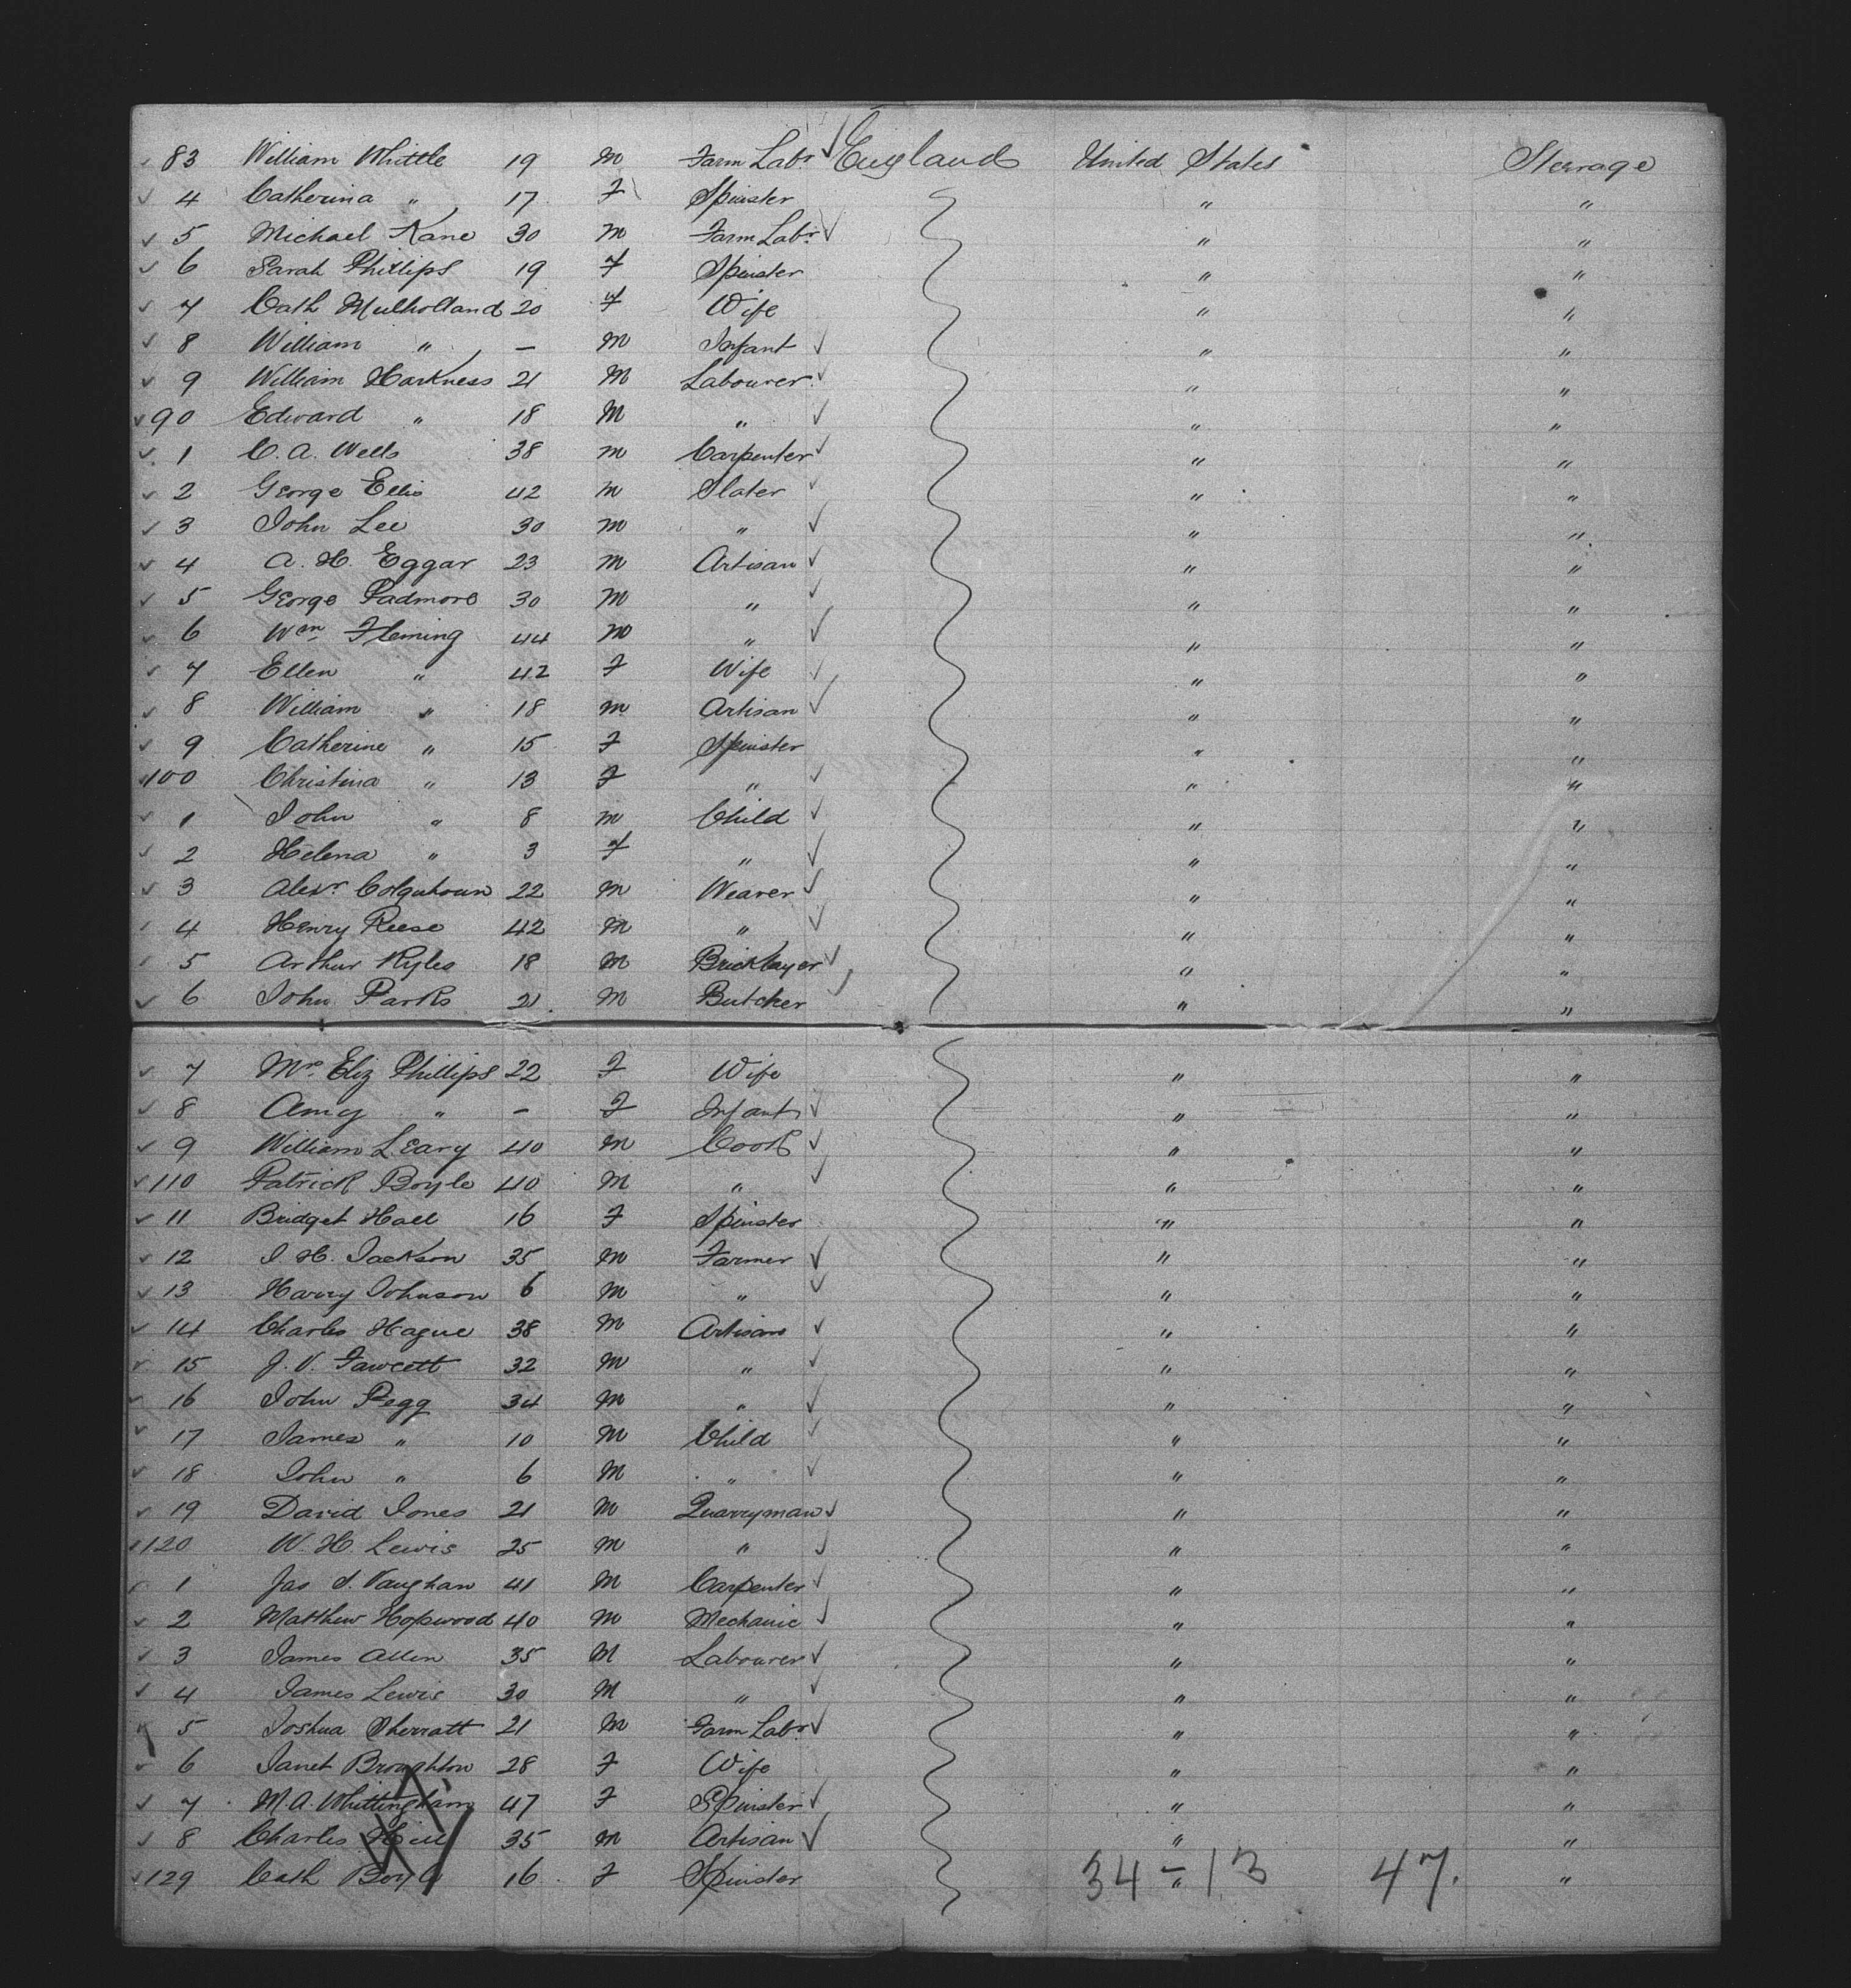 83 William Whittle 19 M Farm Labr England United States Steerage
4 Catherina " 17 F Spinster " "
5 Michael Kane 30 M Farm Labr " "
6 Sarah Phillips 19 F Spinster " "
7 Cath Mulholland 20 F Wife " "
8 William " — M Infant " "
9 William Harkness 21 M Labourer " "
90 Edward " 18 M " " "
1 C. A. Wells 38 M Carpenter " "
2 George Ellis 42 M Slater " "
3 John Lee 30 M " " "
4 A. H. Eggar 23 M Artisan " "
5 George Padmore 30 M " " "
6 Wm Fleming 44 M " " "
7 Ellen " 42 F Wife " "
8 William " 18 M Artisan " "
9 Catherine " 15 F Spinster " "
100 Christina " 13 F " " "
1 John " 8 M Child " "
2 Helena " 3 F " " "
3 Alexr Colquhoun 22 M Weaver " "
4 Henry Reese 42 M " " "
5 Arthur Ryles 18 M Bricklayer " "
6 John Parks 21 M Butcher " "
7 Mrs Eliz Phillips 22 F Wife " "
8 Amy " — F Infant " "
9 William Leary 40 M Cook " "
110 Patrick Boyle 40 M " " "
11 Bridget Hall 16 F Spinster " "
12 J. H. Jackson 35 M Farmer " "
13 Harry Johnson 6 M " " "
14 Charles Hague 38 M Artisan " "
15 J. V. Fawcett 32 M " " "
16 John Pegg 34 M " " "
17 James " 10 M Child " "
18 John " 6 M " " "
19 David Jones 21 M Quarryman " "
120 W. H. Lewis 25 M " " "
1 Jas J. Vaughan 41 M Carpenter " "
2 Matthew Hopwood 40 M Mechanic " "
3 James Allen 35 M Labourer " "
4 James Lewis 30 M " " "
5 Joshua Sherratt 21 M Farm Labr " "
6 Janet Broughton 28 F Wife " "
7 M. A. Whittingham 47 F Spinster " "
8 Charles Hill 35 M Artisan " "
129 Cath Boyle 16 F Spinster " "
34 - 13 47.